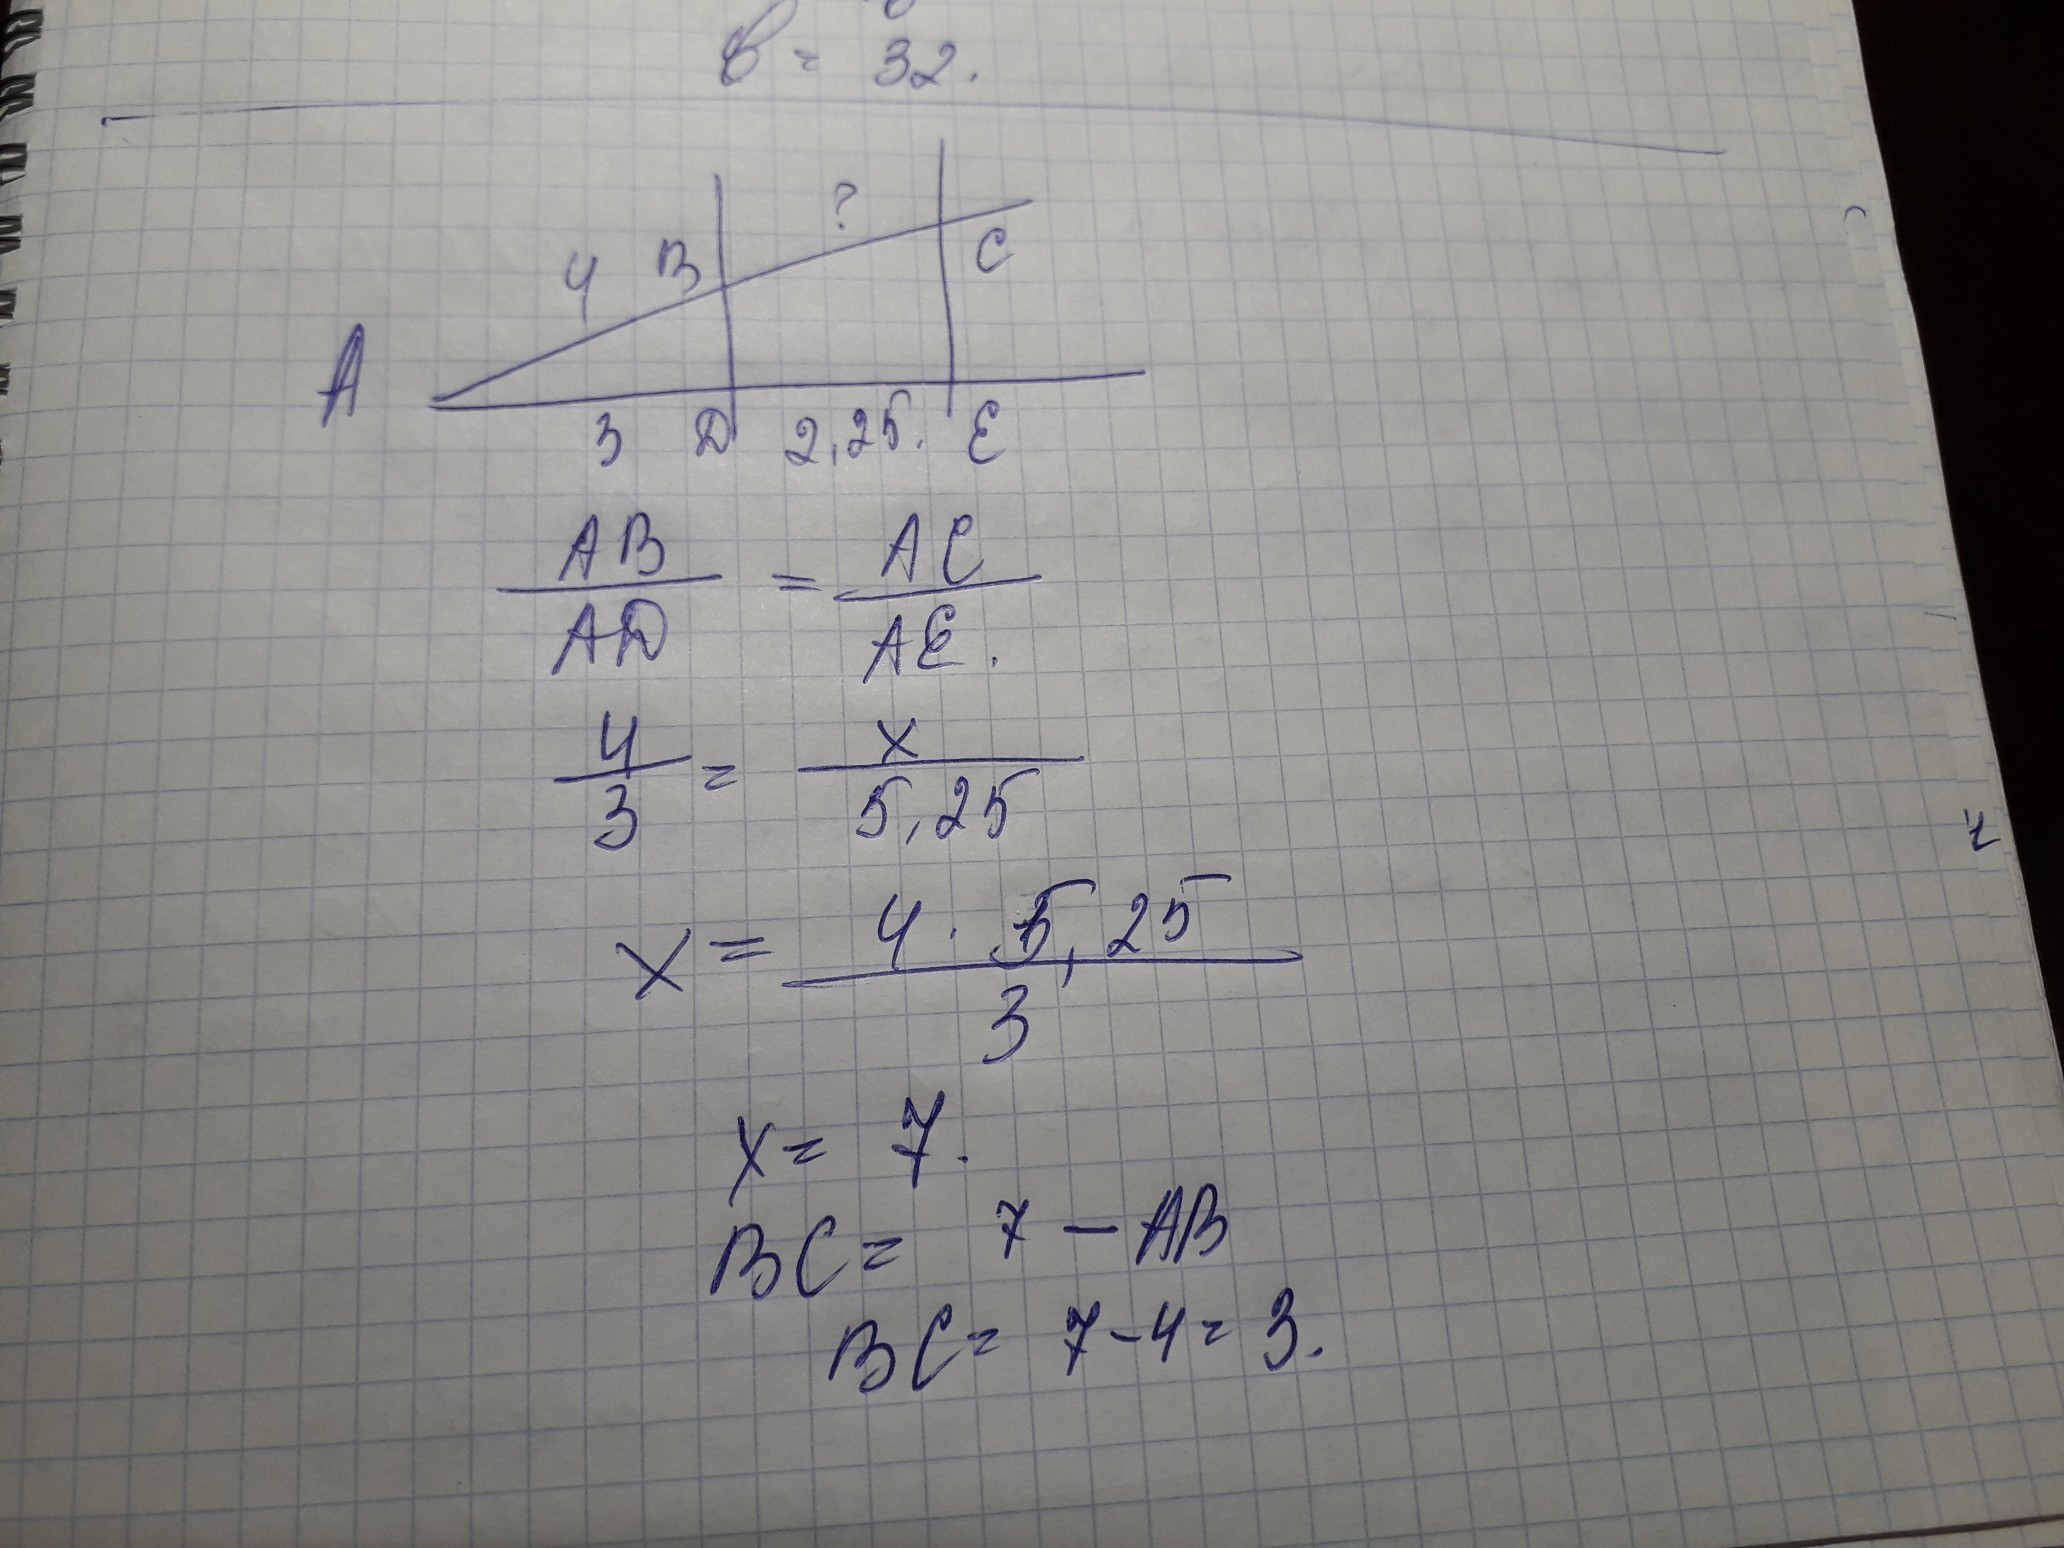 b = 32.
?
4 B C
A
3 D 2,25. E
AB / AD = AC / AE.
4 / 3 = x / 5,25
x = 4 · 5,25 / 3
x = 7.
BC = 7 - AB
BC = 7 - 4 = 3.